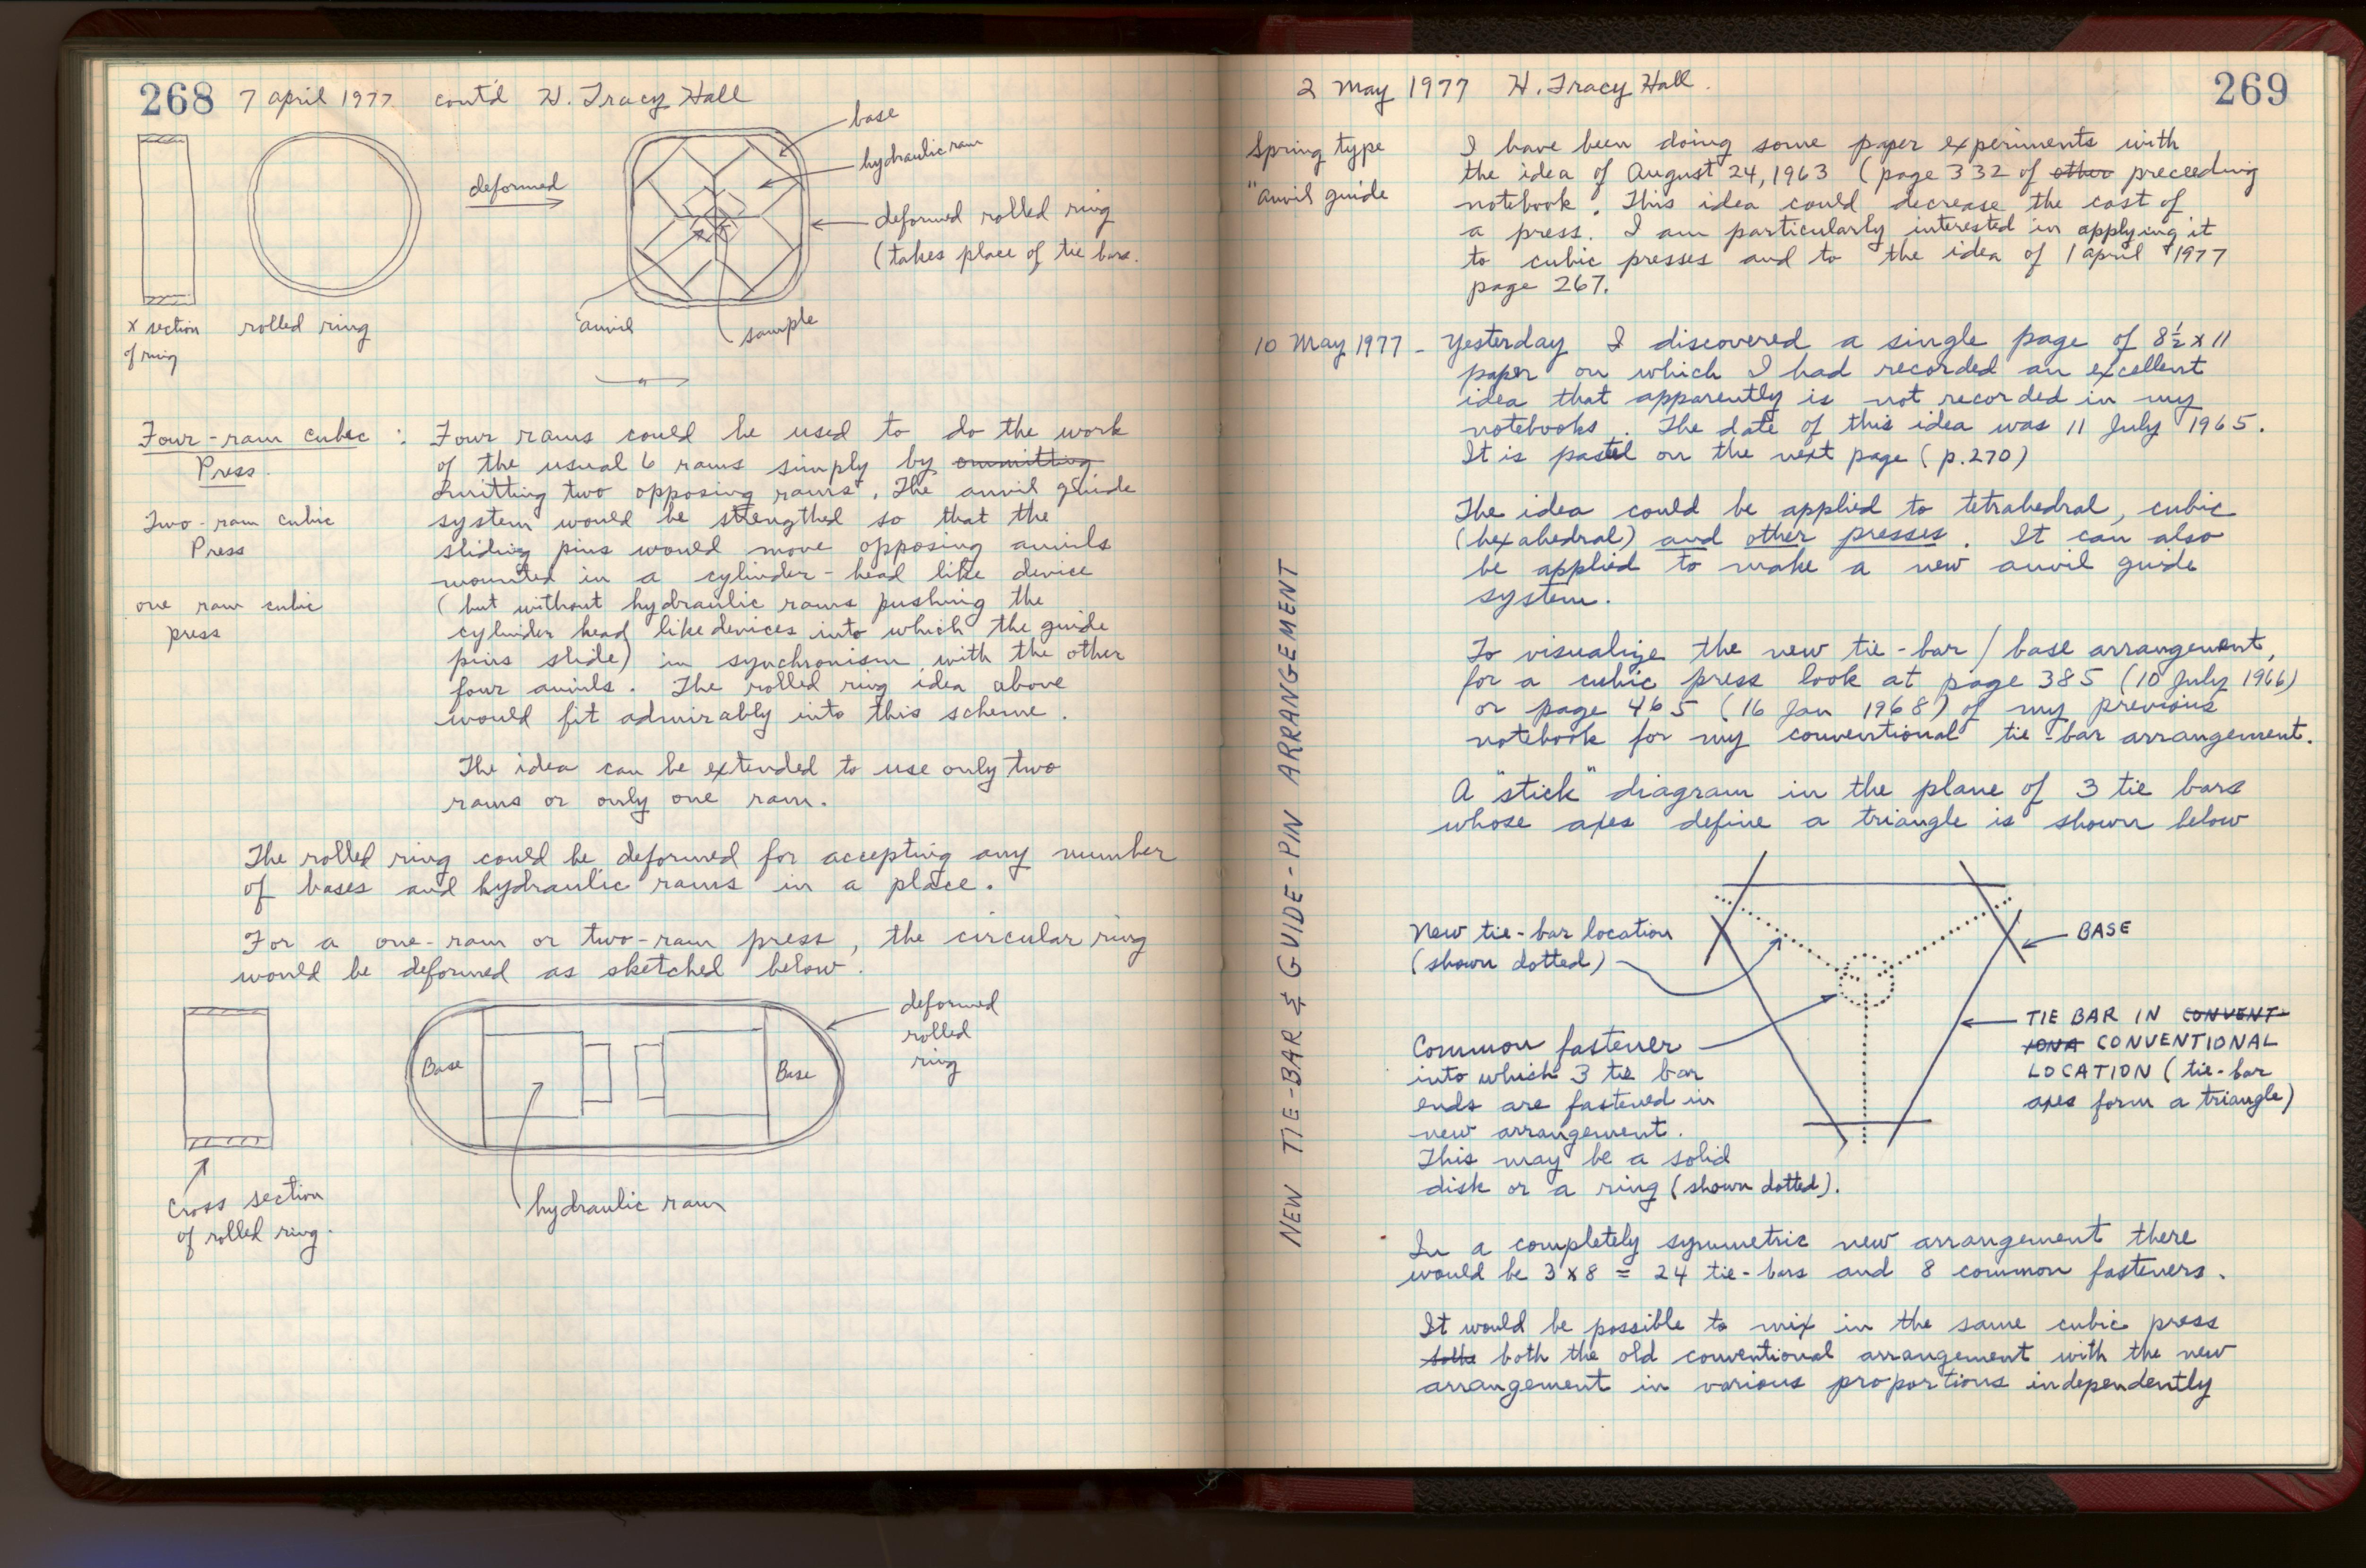 268 7 April 1977 cont'd H. Tracy Hall
base
hydraulic ram
deformed
deformed rolled ring
(takes place of tie bars.
x section
of ring
rolled ring
anvil
sample
Four-ram cubic
Press.
: Four rams could be used to do the work
of the usual 6 rams simply by ommitting
omitting two opposing rams. The anvil guide
Two-ram cubic
Press
system would be strengthed so that the
sliding pins would move opposing anvils
mounted in a cylinder-head like device
one ram cubic
press
(but without hydraulic rams pushing the
cylinder head like devices into which the guide
pins slide) in synchronism with the other
four anvils. The rolled ring idea above
would fit admirably into this scheme.
The idea can be extended to use only two
rams or only one ram.
The rolled ring could be deformed for accepting any number
of bases and hydraulic rams in a place.
For a one-ram or two-ram press, the circular ring
would be deformed as sketched below.
deformed
rolled
ring
Base
Base
cross section
of rolled ring.
hydraulic ram
2 May 1977 H. Tracy Hall.
269
Spring type
"anvil guide
I have been doing some paper experiments with
the idea of August 24, 1963 (page 332 of other preceeding
notebook. This idea could decrease the cost of
a press. I am particularly interested in applying it
to cubic presses and to the idea of 1 April 1977
page 267.
10 May 1977 - Yesterday I discovered a single page of 8½ x 11
paper on which I had recorded an excellent
idea that apparently is not recorded in my
notebooks. The date of this idea was 11 July 1965.
It is pasted on the next page (p.270)
The idea could be applied to tetrahedral, cubic
(hexahedral) and other presses. It can also
be applied to make a new anvil guide
system.
NEW TIE-BAR & GUIDE-PIN ARRANGEMENT
To visualize the new tie-bar/base arrangement,
for a cubic press look at page 385 (10 July 1966)
or page 465 (16 Jan 1968) of my previous
notebook for my conventional tie-bar arrangement.
A "stick" diagram in the plane of 3 tie bars
whose axes define a triangle is shown below
New tie-bar location
(shown dotted)
BASE
Common fastener
into which 3 tie bar
ends are fastened in
new arrangement.
This may be a solid
disk or a ring (shown dotted).
TIE BAR IN CONVENT-
IONA CONVENTIONAL
LOCATION (tie-bar
axes form a triangle)
In a completely symmetric new arrangement there
would be 3 x 8 = 24 tie-bars and 8 common fasteners.
It would be possible to mix in the same cubic press
both the old conventional arrangement with the new
arrangement in various proportions independently